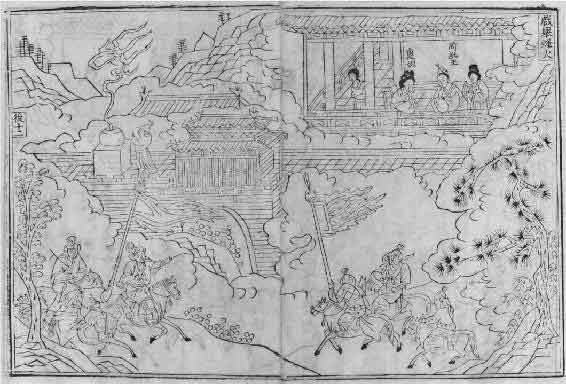 戲舉烽火
周幽王
褒姒